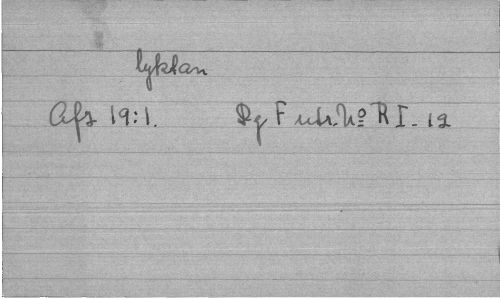 lyktan
Afz 19:1. Rg F utr. No R I - 19